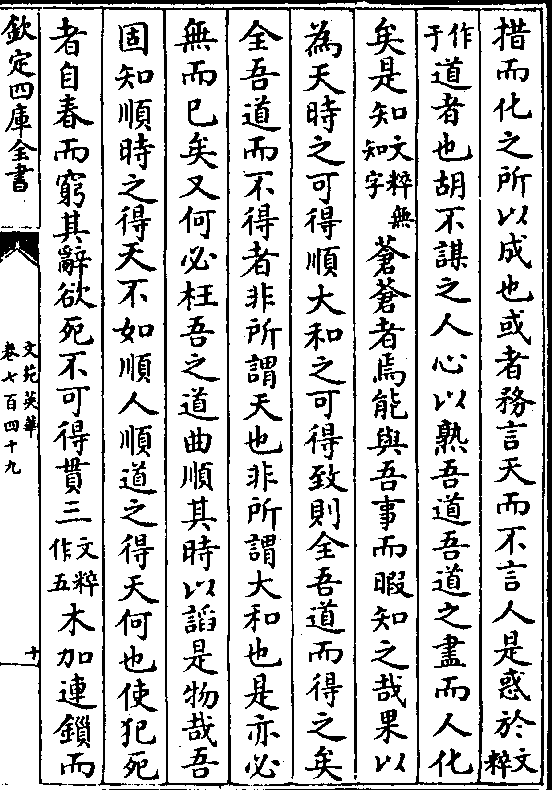 措而化之所以成也或者務言天而不言人是惑於文粹
作于道者也胡不謀之人心以熟吾道吾道之盡而人化
矣是知文粹無知字蒼蒼者焉能與吾事而暇知之哉果以
為天時之可得順大和之可得致則全吾道而得之矣
全吾道而不得者非所謂天也非所謂大和也是亦必
無而已矣又何必枉吾之道曲順其時以謟是物哉吾
固知順時之得天不如順人順道之得天何也使犯死
者自春而窮其辭欲死不可得貫三文粹作五木加連鎖而
欽定四庫全書
文苑英華
卷七百四十九
十